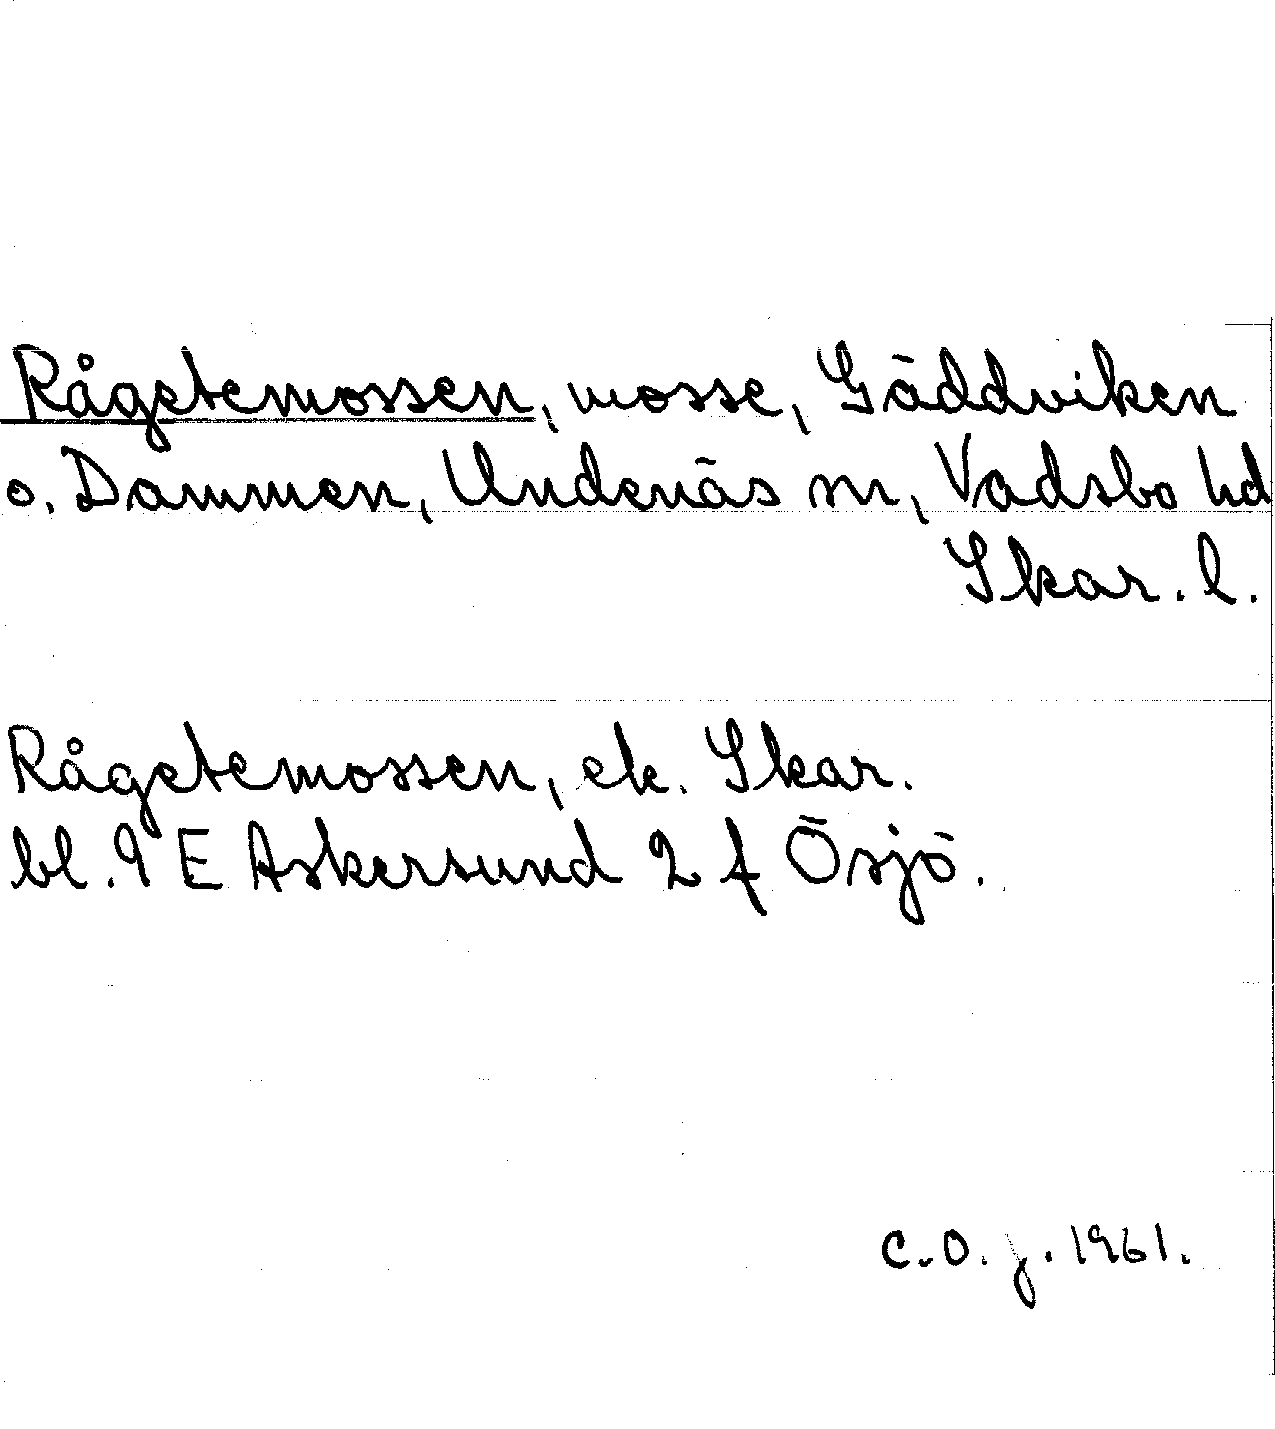 Rågetemossen, mosse, Gäddviken
o. Dammen, Undenäs sn, Vadsbo hd
Skar. l.
Rågetemossen, ek. Skar.
bl. 9 E Askersund 2 f Ösjö.
C. O. J. 1961.